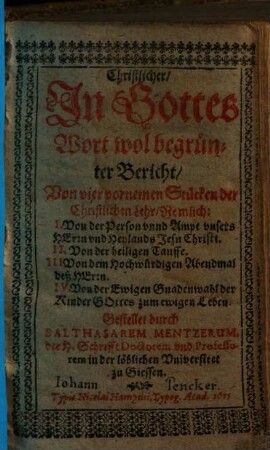 Christlicher/
In Gottes
Wort wol begrün-
ter Bericht/
Von vier vornemen Stücken der
Christlichen Lehr/Nemlich:
I. Von der Person vnnd Ampt vnsers
HErrn vnd Heylands Jesu Christi.
II. Von der heiligen Tauffe.
III Von dem Hochwürdigen Abendmal
deß HErrn.
IV Von der Ewigen Gnadenwahl der
Kinder GOttes zum ewigen Leben.
Gestellet durch
BALTHASAREM MENTZERUM,
der H. Schrifft Doctorem vnd Professo-
rem in der löblichen Vniversitet
zu Giessen.
Iohann Pencker.
Typis Nicolai Hampelii, Typog. Acad.